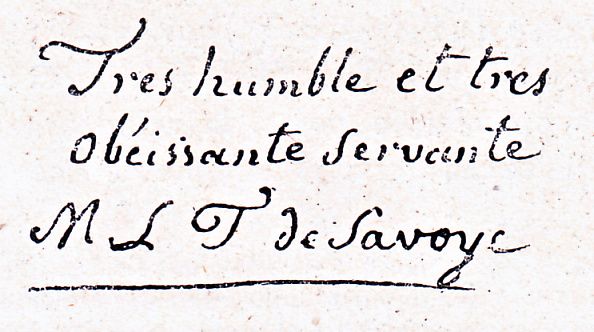 Tres humble et tres
obéissante servante
M L T de Savoye